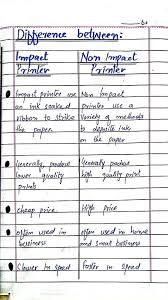 Difference between:
Impact Printer
Non Impact Printer
Impact printer use an ink soaked ribbon to strike the paper.
Non Impact printer use a variety of methods to deposite ink on the paper
Generally produce lower quality prints
Generally produce high quality print
Cheap price
High price
often used in business
often used in home and small business
Slower in speed
Faster in speed